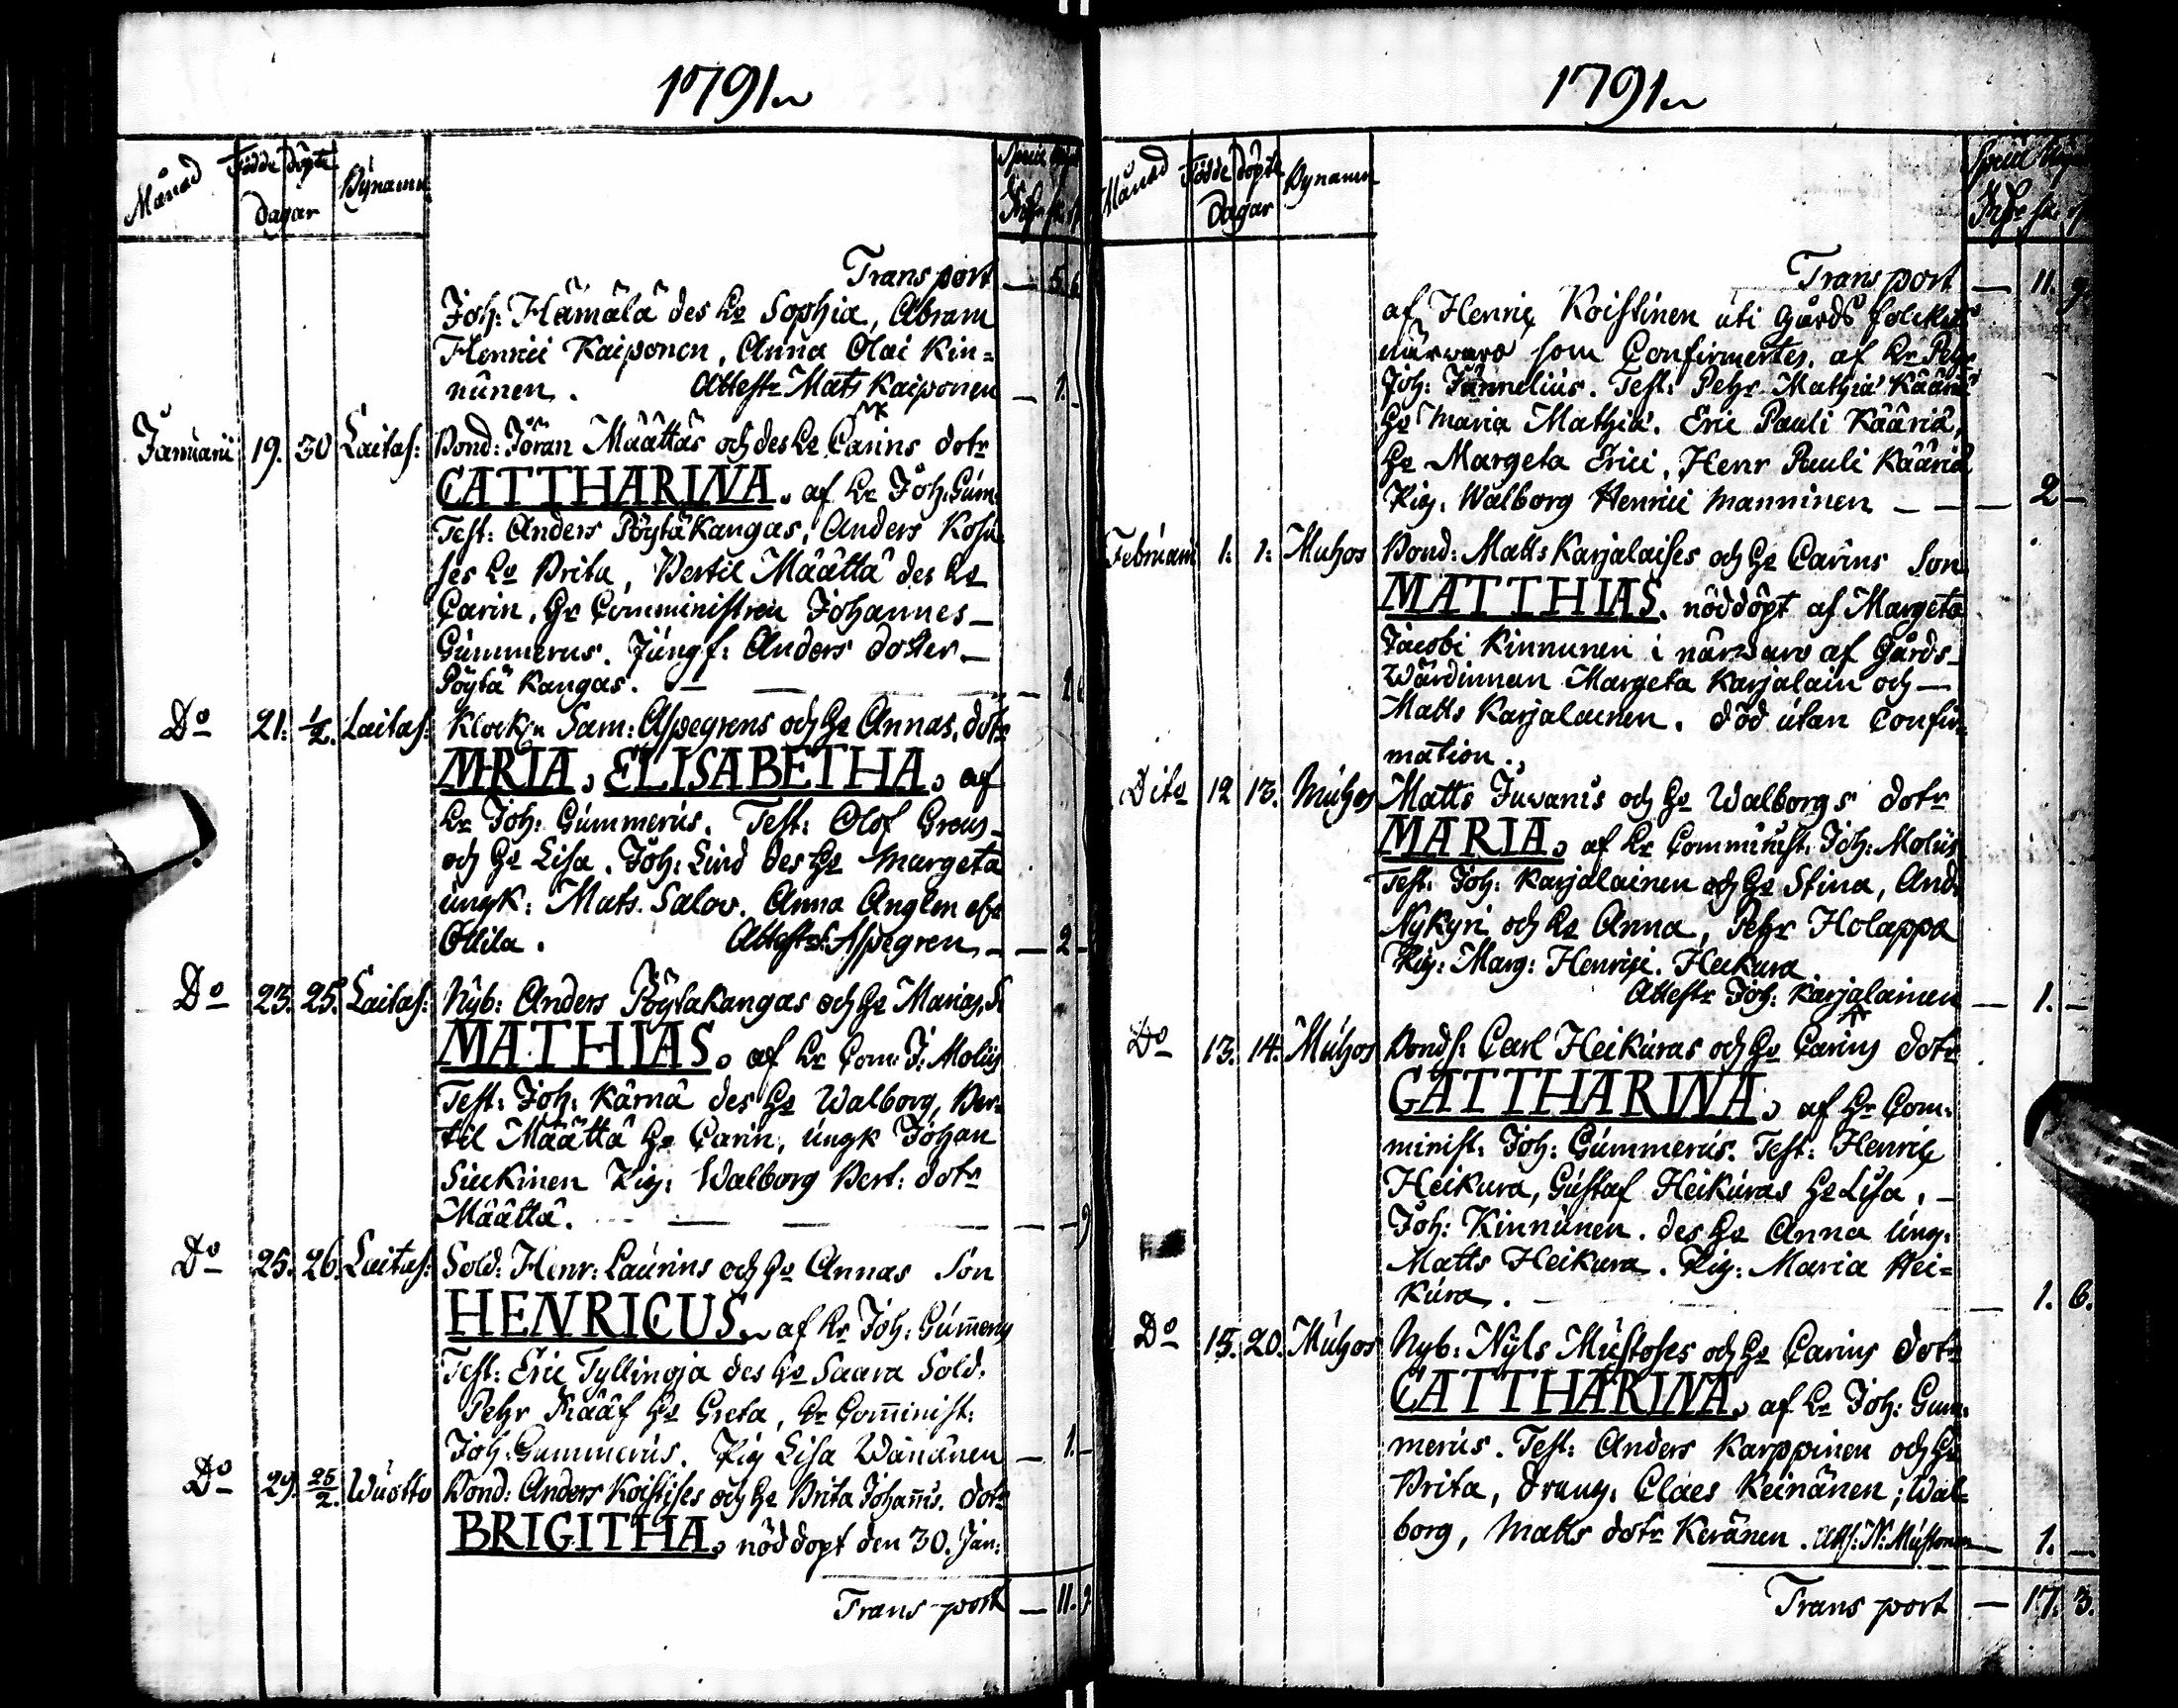 1791
Månad Födde döpte Bÿnamn
dagar
Transport — 5. 6
Joh: Hämälä des ho Sophia, Abram
Henrici Kaiponen, Anna Olai Kin=
nunen. Attestr Mats Kaiponen — 1. -
Januarii 19. 30 Laitas: Bond: Jöran Määttäs och des ho Carins dotr
CATTHARINA. af hr Joh: Gum.
Test: Anders Pöytäkangas, Anders Kosu
ses ho Brita, Bertil Määttä des ho
Carin, Hr Comministren Johannes —
Gummerus. Jungf: Anders dotter —
Pöytä Kangas. —
Do 21. ½. Laitas: Klock: Sam: Aspegrens och ho Annas. dotr
MRIA, ELISABETHA, af
hr Joh: Gummerus. Test: Olof Greus
och ho Lisa. Joh: Lind des ho Margeta
ungk: Mats. Salov. Anna Anglen
Ollila. Attestr S: Aspegren — 2 -
Do 23. 25. Laitas: Nyb: Anders Pöytakangas och ho Marias, S.
MATHIAS. af hr Com: J: Molius
Test: Joh: Kärnä des ho Walborg, Ber=
til Määttä ho Carin, ungk Johan
Siukinen Pig: Walborg Bert: dotr
Määttä. — — — 9
Do 25. 26. Laitas: Sold: Henr: Laurins och ho Annas Son
HENRICUS af hr Joh: Gum̄erus
Test: Eric Tyllinoja des ho Saara Sold.
Pehr Rääf ho Greta, hr Com̄inist:
Joh: Gummerus. Pig Lisa Wänänen — 1. -
Do 29. 25/2. Wuotto Bond: Anders Koistises och ho Brita Johan̄s. dotr
BRIGITHA, nöddopt den 30. Jan:
Transport — 11. 9
1791
Månad Födde döpte Bynamn
Dagar
Transport — 11. 9.
af Henric Koistinen uti Gårds folckets
närvaro som Confirmertes. af hr Pehr
Joh: Test: Pehr Mathiæ Kääriä
ho Maria Mathiæ. Eric Pauli Kääriä,
ho Margeta Erici, Henr Pauli Kääriä
Pig. Walborg Henrici Manninen — — — 2 —
Februarii 1: 1: Muhos Bond: Matts Karjalaises och ho Carins Son
MATTHIAS. nöddöpt af Margeta
Jacobi Kinnunen i närvaro af Gårds-
Wärdinnan Margeta Karjalain och —
Matts Karjalainen. död utan Confir-
mation.
Dito 12 13. Muhos Matts Juvanis och ho Walborgs dotr
MARIA, af hr Comminist. Joh: Molius
Test: Joh: Karjalainen och ho Stina, And:
Nykyri och ho Anna, Pehr Holappa
Pig: Marg: Henrici. Heikura
Attestr Joh: Karjalainen — 1. —
Do 13. 14. Muhos Bonds: Carl Heikuras och ho Carins dotr
CATTHARINA, af hr Com:
minist: Joh: Gummerus. Test: Henric
Heikura, Gustaf Heikuras ho Lisa. —
Joh: Kinnunen. des ho Anna ung:
Matts Heikura. Pig: Maria Hei=
kura. — 1. 6.
Do 15. 20. Muhos Nyb: Nyls Mustoses och ho Carins dotr
CATTHARINA, af hr Joh: Gum:
merus. Test: Anders Karppinen och ho
Brita, dräng: Claes Keinänen; Wal=
borg, Matts dotr Keränen. Atts: N: Mustonen — 1. —
Transport — 17. 3.